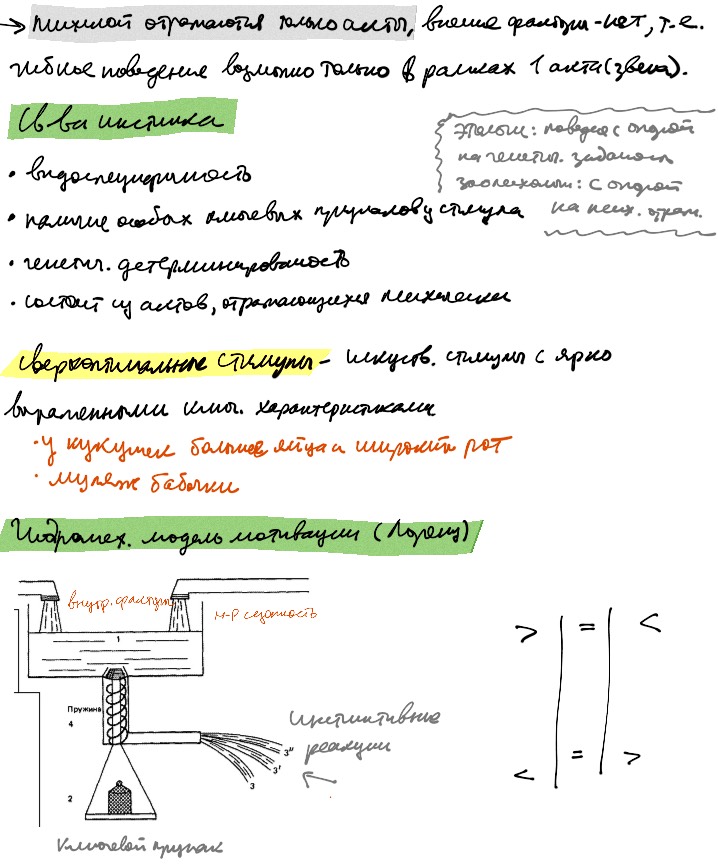 → психикой отражаются только акты, внешние факторы - нет, т.е.
гибкое поведение возможно только в рамках 1 акта (звена).
Св-ва инстинкта
Этологи: поведен с опорой
на генетич. заданность
зоопсихологи: с опорой
на псих. отраж.
• видоспецифичность
• наличие особых ключевых признаков у стимула
• генетич. детерминированость
• состоит из актов, отражающихся психически
сверхоптимальные стимулы - искуств. стимулы с ярко
выраженными ключ. характеристиками
• у кукушек большие яйца и широкий рот
• муляж бабочки
Гидромех. модель мотивации (Лоренц)
внутр. факторы
н-р сезонность
1
Пружина
4
3"
3'
3
2
Инстинктивные
реакции
Ключевой признак
> | = | <
< | = | >